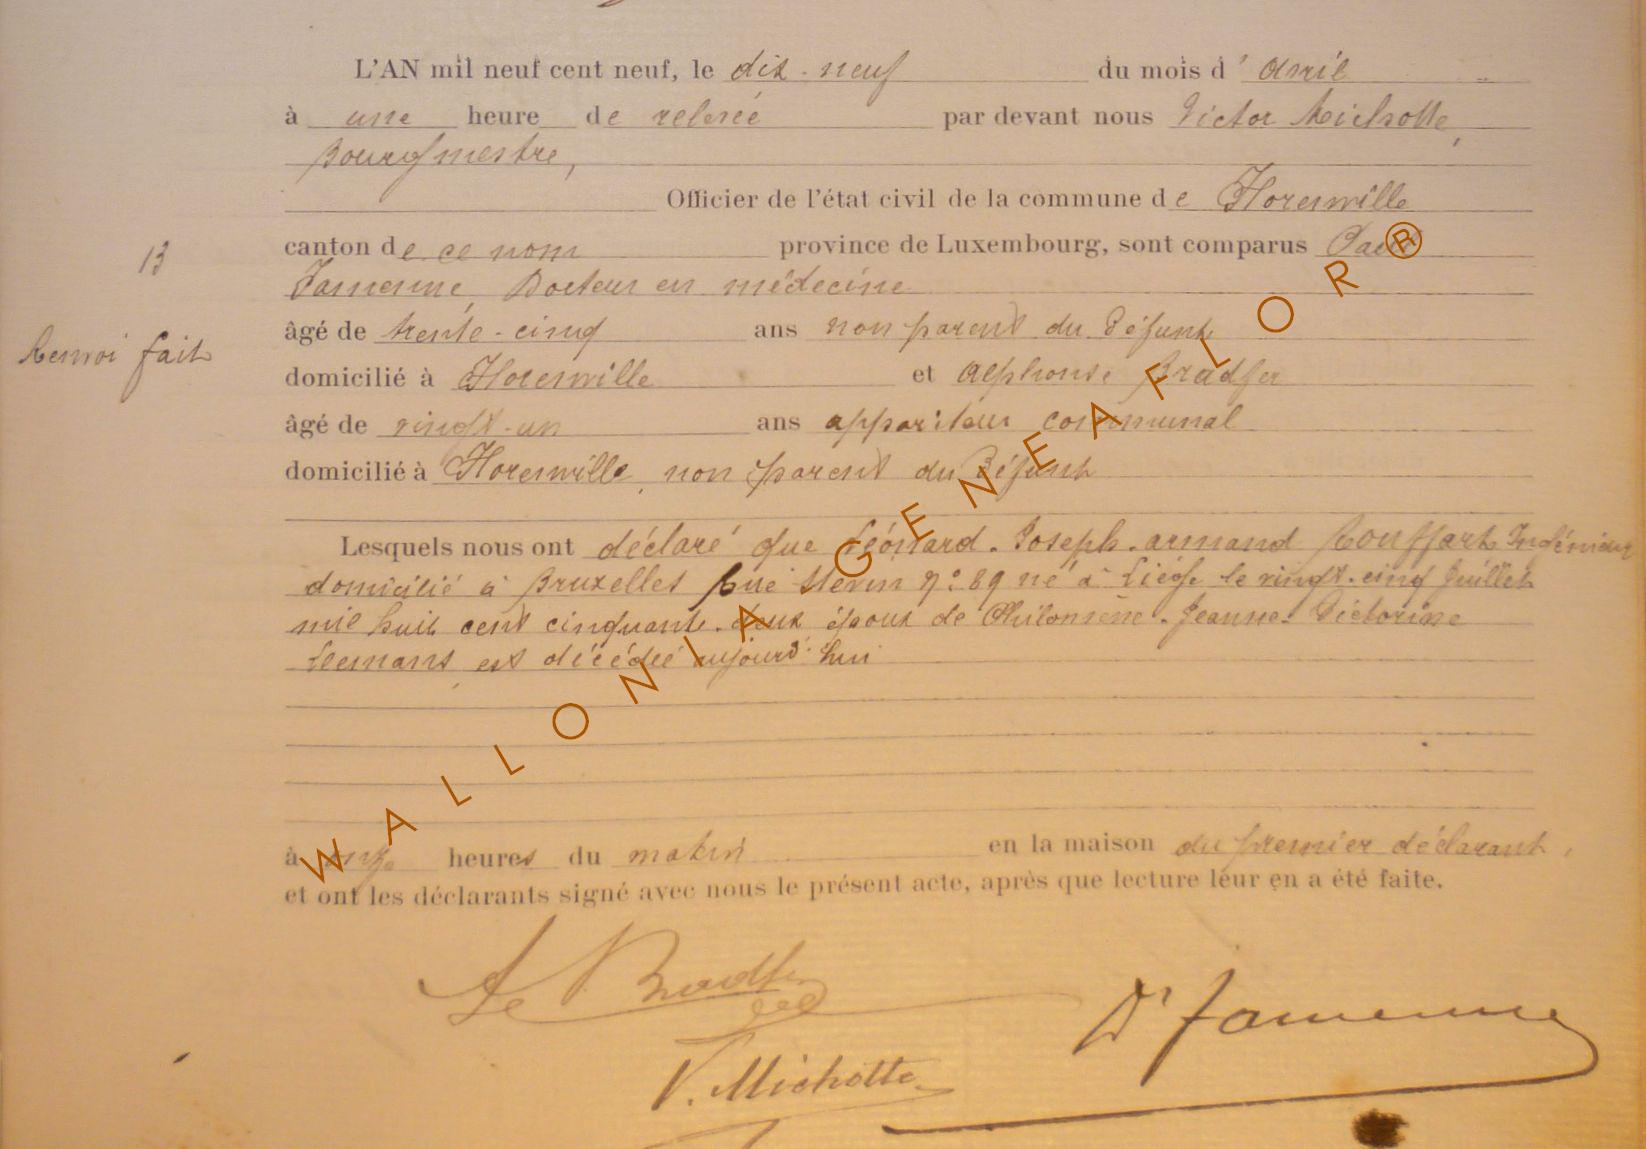 L'AN mil neuf cent neuf, le dix-neuf du mois d'avril
à une heure de relevée par devant nous Victor Michotte,
Bourgmestre,
Officier de l'état civil de la commune de Florenville
13
canton de ce nom province de Luxembourg, sont comparus Paul
Famenne, Docteur en médecine
âgé de trente-cinq ans non parent du défunt
Renvoi fait
domicilié à Florenville et Alphonse Bradfer
âgé de vingt-un ans appariteur communal
domicilié à Florenville, non parent du défunt
Lesquels nous ont déclaré que Léonard-Joseph-Armand Rouffart Ingénieur
domicilié à Bruxelles Rue Stévin n° 89 né à Liége le vingt-cinq Juillet
mil huit cent cinquante-deux époux de Philomène-Jeanne-Victorine
Leemans, est décédé aujourd'hui
à onze heures du matin en la maison du premier déclarant,
et ont les déclarants signé avec nous le présent acte, après que lecture leur en a été faite.
Bradfer
Dr Famenne
V. Michotte
WALLONIA GENEAFLOR®